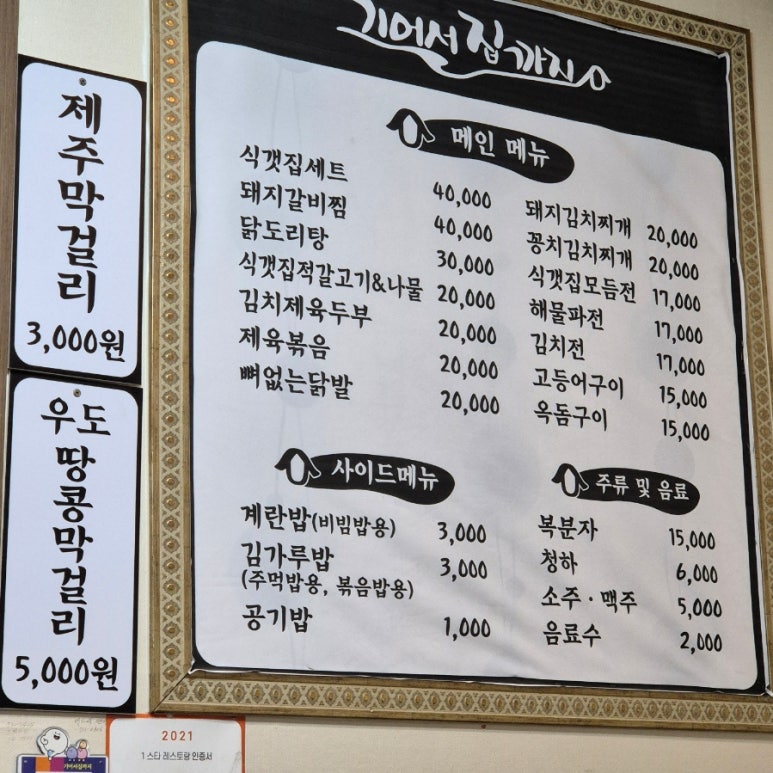 제주막걸리
3,000원
우도
땅콩막걸리
5,000원
기어서 집까지
메인 메뉴
식갯집세트 40,000
돼지갈비찜 40,000
닭도리탕 30,000
식갯집적갈고기&나물 20,000
김치제육두부 20,000
제육볶음 20,000
뼈없는닭발 20,000
돼지김치찌개 20,000
꽁치김치찌개 20,000
식갯집모듬전 17,000
해물파전 17,000
김치전 17,000
고등어구이 15,000
옥돔구이 15,000
사이드메뉴
계란밥(비빔밥용) 3,000
김가루밥 3,000
(주먹밥용, 볶음밥용)
공기밥 1,000
주류 및 음료
복분자 15,000
청하 6,000
소주·맥주 5,000
음료수 2,000
2021
1 스타 레스토랑 인증서